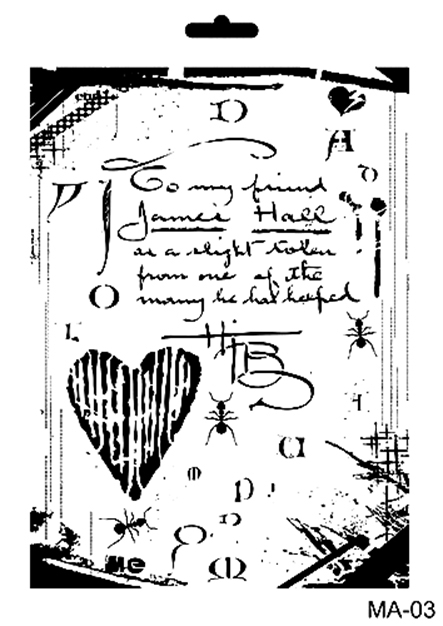 D
A
D
P
To my friend
James Hall
as a slight token
from one of the
many he has helped
O
L
HB
H
a
m
D
D
Me
m
MA-03